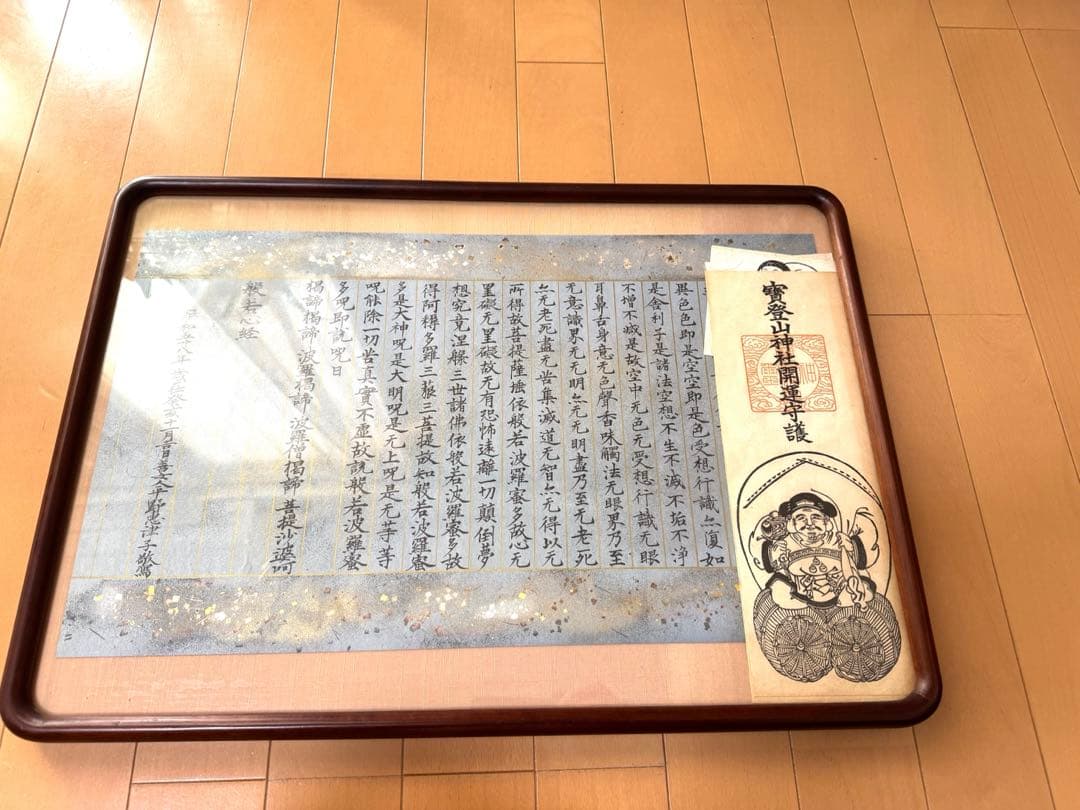 寶登山神社開運守護
異色色即是空空即是色受想行識亦復如
是舍利子是諸法空想不生不滅不垢不净
不增不減是故空中无色无受想行識无眼
耳鼻舌身意无色聲香味觸法无眼界乃至
无意識界无无明亦无无明盡乃至无老死
亦无老死盡无苦集滅道无智亦无得以无
所得故菩提薩埵依般若波羅蜜多故心无
罣礙无罣礙故无有恐怖遠離一切顛倒夢
想究竟涅槃三世諸佛依般若波羅蜜多故
得阿耨多羅三藐三菩提故知般若波羅蜜
多是大神呪是大明呪是无上呪是无等等
呪能除一切苦真實不虛故說般若波羅蜜
多呪即說呪曰
揭諦揭諦 波羅揭諦 波羅僧揭諦 菩提沙婆呵
般若心経